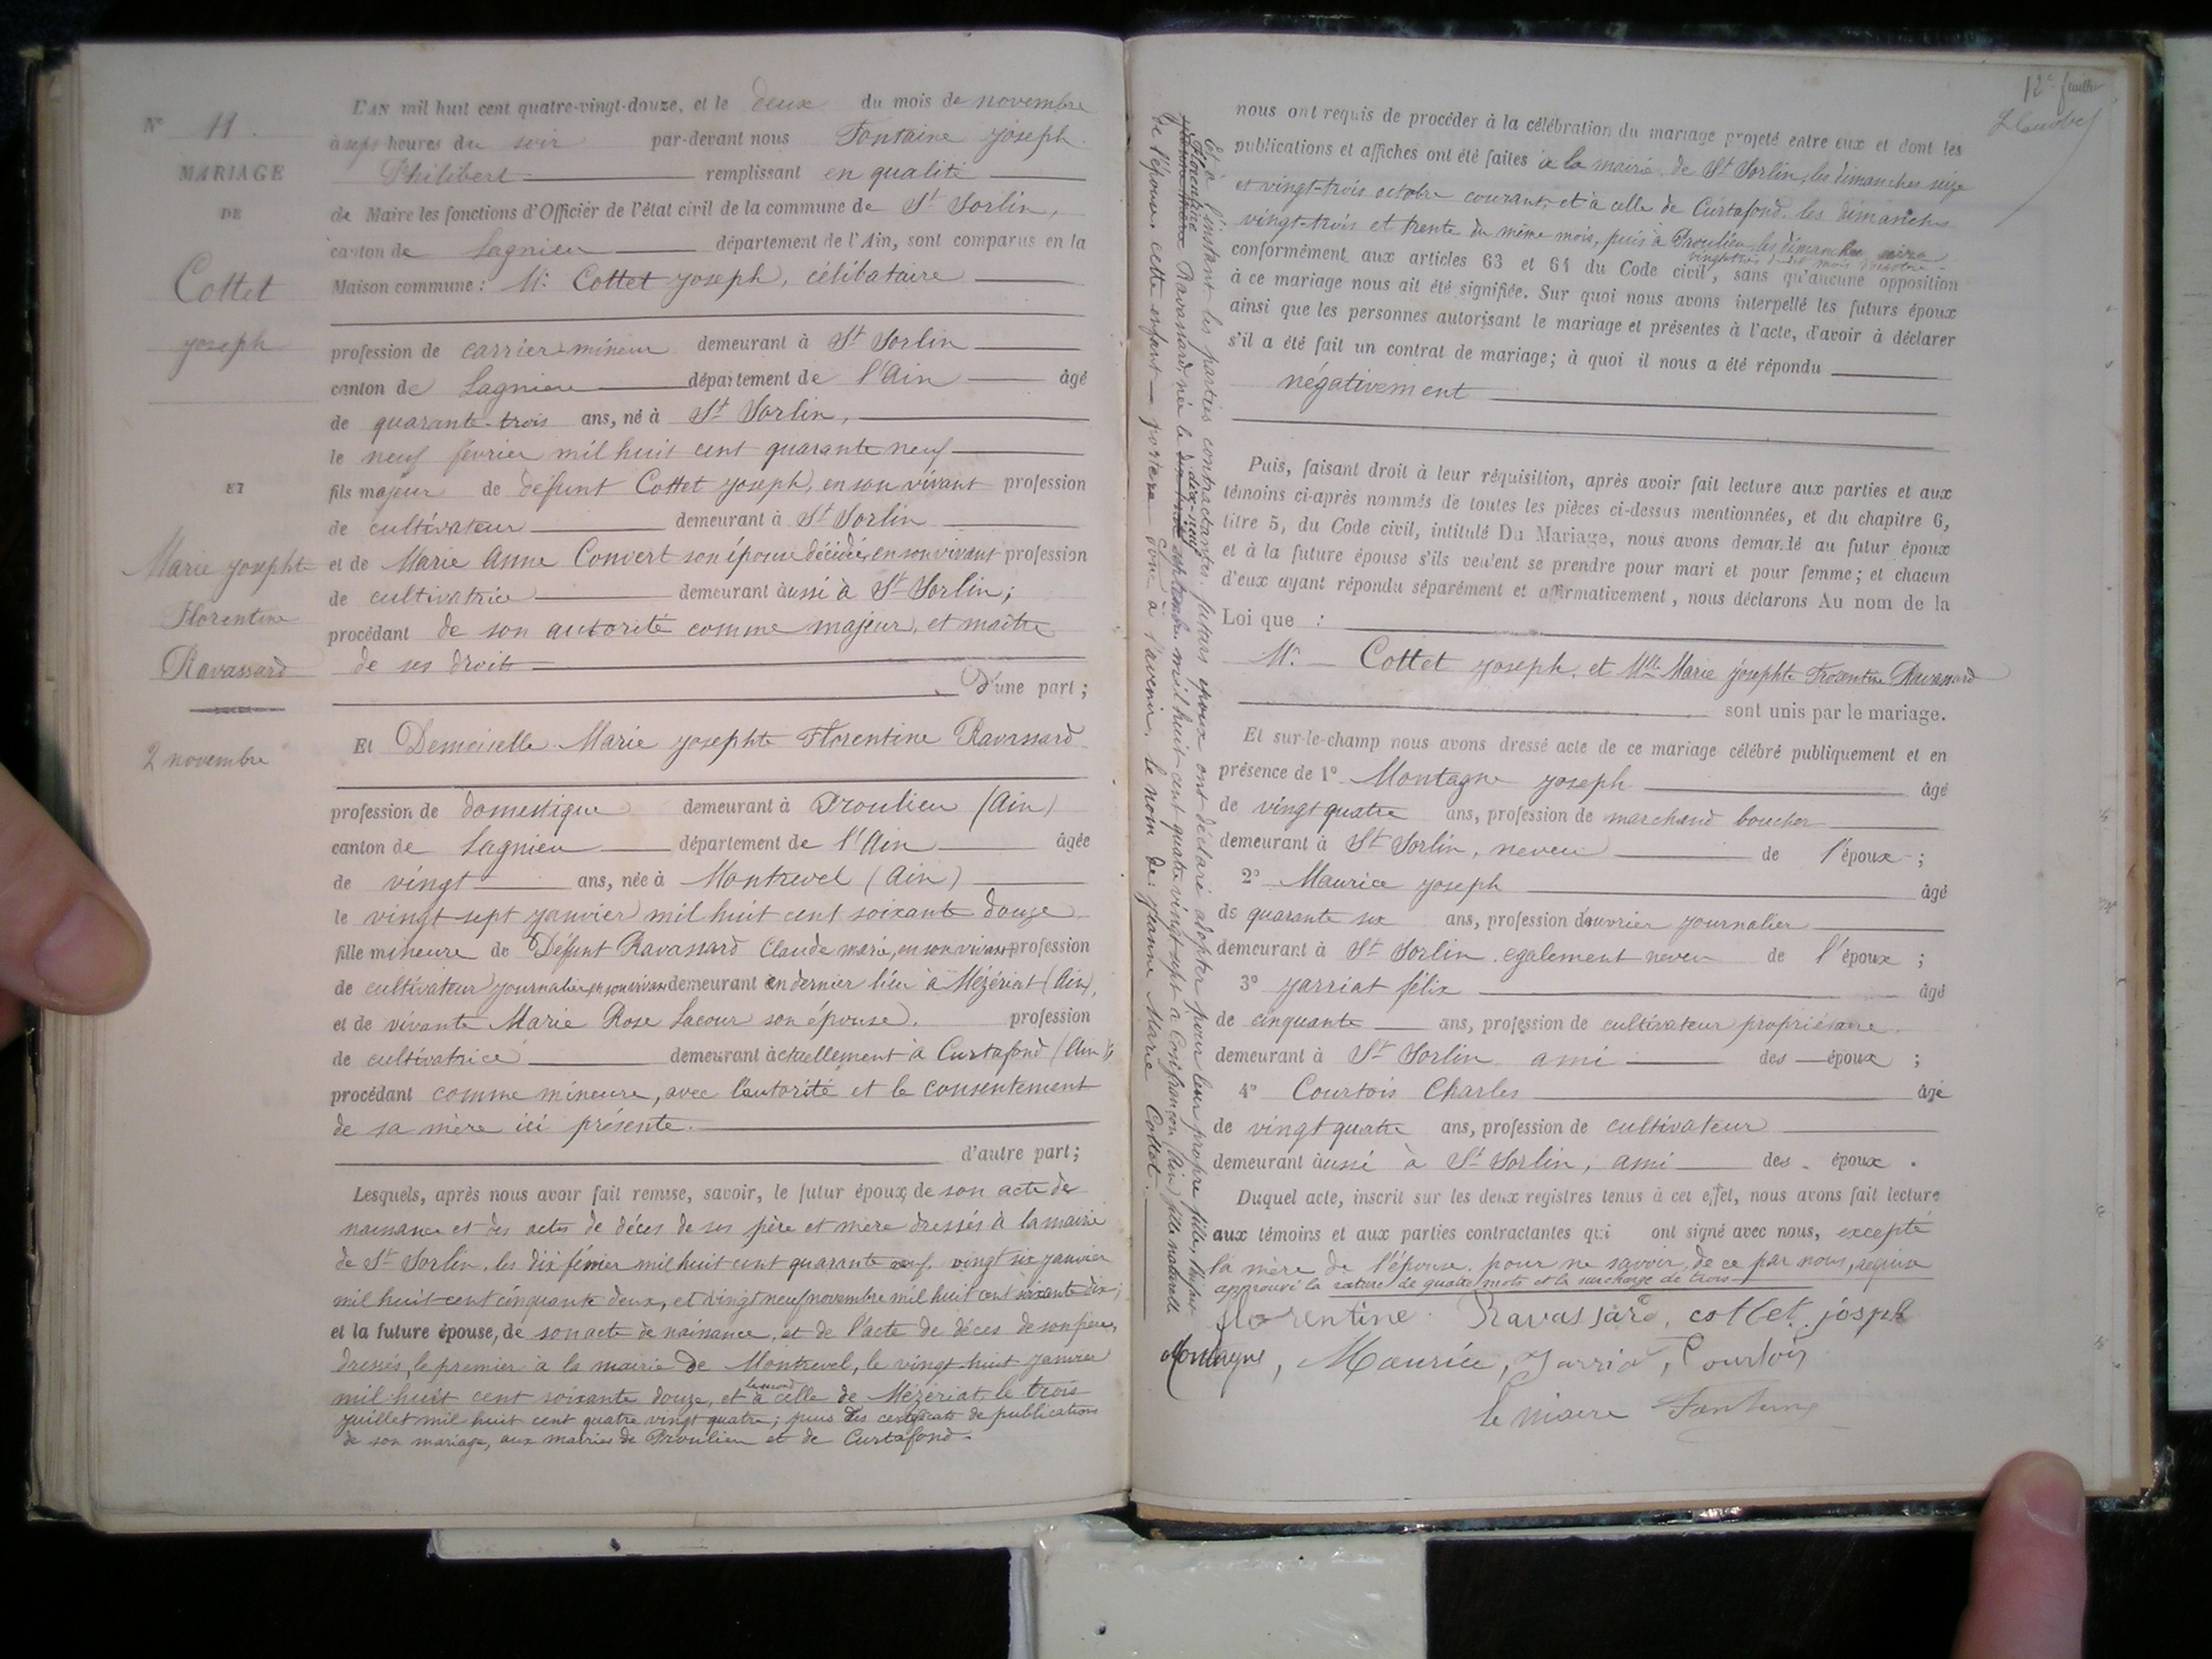 N° 11.
MARIAGE
DE
Cottet
joseph
ET
Marie josephte
Florentine
Ravassard
2 novembre
L'AN mil huit cent quatre-vingt-douze, et le deux du mois de novembre
à sept heures du soir par-devant nous Fontaine joseph
Philibert remplissant en qualité
de Maire les fonctions d'Officier de l'état civil de la commune de St Sorlin,
canton de Lagnieu département de l'Ain, sont comparus en la
Maison commune : Mr Cottet joseph, célibataire
profession de carrier-mineur demeurant à St Sorlin
canton de Lagnieu département de l'Ain âgé
de quarante-trois ans, né à St Sorlin,
le neuf février mil huit cent quarante neuf
fils majeur de défunt Cottet joseph, en son vivant profession
de cultivateur demeurant à St Sorlin
et de Marie Anne Convert son épouse décédée, en son vivant profession
de cultivatrice demeurant aussi à St Sorlin;
procédant de son autorité comme majeur, et maître
de ses droits
D'une part ;
Et Demoiselle Marie josephte Florentine Ravassard
profession de domestique demeurant à Proulieu (Ain)
canton de Lagnieu département de l'Ain âgée
de vingt ans, née à Montrevel (Ain)
le vingt-sept janvier mil huit cent soixante douze
fille mineure de Défunt Ravassard Claude marie, en son vivant profession
de cultivateur journalier, en son vivant demeurant en dernier lieu à Mézériat (Ain),
et de vivante Marie Rose Lacour son épouse. profession
de cultivatrice demeurant actuellement à Curtafond (Ain);
procédant comme mineure, avec l'autorité et le consentement
de sa mère ici présente.
d'autre part ;
Lesquels, après nous avoir fait remise, savoir, le futur époux, de son acte de
naissance et des actes de décès de ses père et mère dressés à la mairie
de St Sorlin, les dix février mil huit cent quarante neuf, vingt six janvier
mil huit cent cinquante deux, et vingt neuf novembre mil huit cent soixante dix;
et la future épouse, de son acte de naissance, et de l'acte de décès de son père,
dressés, le premier à la mairie de Montrevel, le vingt-huit janvier
mil huit cent soixante douze, et le second à celle de Mézériat, le trois
juillet mil huit cent quatre vingt quatre ; puis des certificats de publications
de son mariage, aux mairies de Proulieu et de Curtafond.
Et à l'instant les parties contractantes, futurs époux ont déclaré adopter pour leur propre fille,
Florentine Ravassard, née le dix-neuf septembre mil huit-cent-quatre vingt-sept à Confrançon (Ain) fille naturelle
de l'épouse, cette enfant portera donc à l'avenir, le nom de: Jeanne Marie Cottet.
12e feuillet
nous ont requis de procéder à la célébration du mariage projeté entre eux et dont les
publications et affiches ont été faites à la mairie de St Sorlin, les dimanches seize
et vingt-trois octobre courant, et à celle de Curtafond, les dimanches
vingt-trois et trente du même mois, puis à Proulieu, les dimanches seize
vingt-trois dudit mois d'octobre
conformément aux articles 63 et 64 du Code civil, sans qu'aucune opposition
à ce mariage nous ait été signifiée. Sur quoi nous avons interpellé les futurs époux
ainsi que les personnes autorisant le mariage et présentes à l'acte, d'avoir à déclarer
s'il a été fait un contrat de mariage ; à quoi il nous a été répondu
négativement
Puis, faisant droit à leur réquisition, après avoir fait lecture aux parties et aux
témoins ci-après nommés de toutes les pièces ci-dessus mentionnées, et du chapitre 6,
titre 5, du Code civil, intitulé Du Mariage, nous avons demandé au futur époux
et à la future épouse s'ils veulent se prendre pour mari et pour femme ; et chacun
d'eux ayant répondu séparément et affirmativement, nous déclarons Au nom de la
Loi que :
Mr Cottet joseph, et Mlle Marie josephte Frosentine Ravassard
sont unis par le mariage.
Et sur-le-champ nous avons dressé acte de ce mariage célébré publiquement et en
présence de 1° Montagne joseph âgé
de vingt quatre ans, profession de marchand boucher
demeurant à St Sorlin, neveu de l'époux ;
2° Maurice joseph âgé
de quarante six ans, profession d'ouvrier journalier
demeurant à St Sorlin également neveu de l'époux ;
3° jarriat félix âgé
de cinquante ans, profession de cultivateur propriétaire
demeurant à St Sorlin ami des époux ;
4° Courtois Charles âgé
de vingt quatre ans, profession de cultivateur
demeurant aussi à St Sorlin, ami des époux.
Duquel acte, inscrit sur les deux registres tenus à cet effet, nous avons fait lecture
aux témoins et aux parties contractantes qui ont signé avec nous, excepté
la mère de l'épouse pour ne savoir, de ce par nous, requise
approuvé la rature de quatre mots et la surcharge de trois
florentine Ravassard, cottet josph
Montagne, Maurice, Jarriat, Courtois
le maire Fontaine